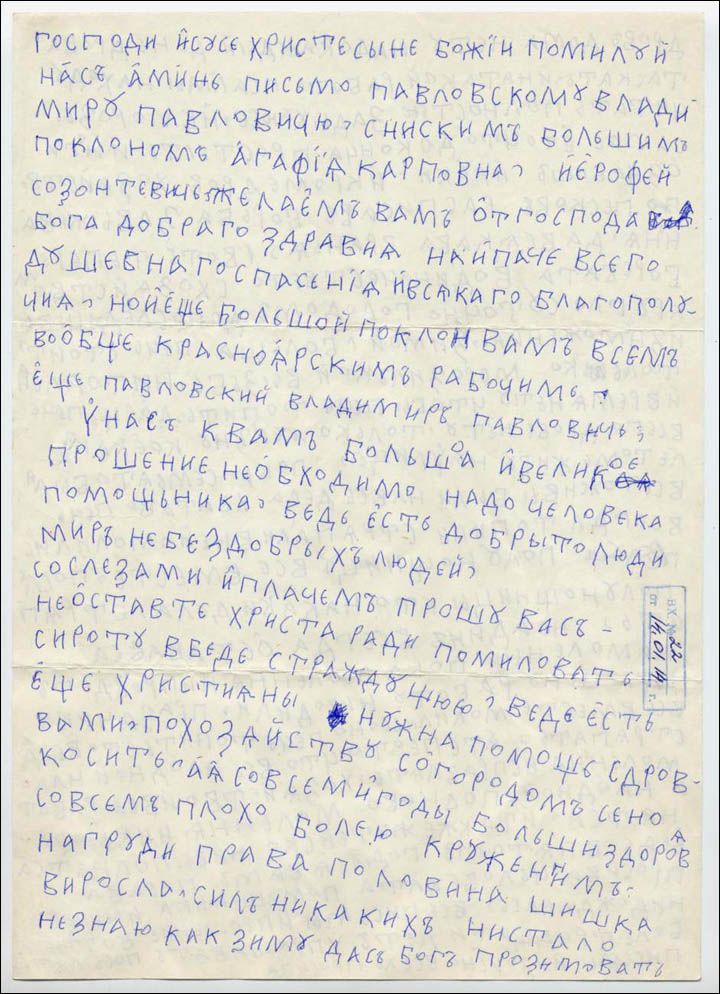 ГОСПОДИ ИСУСЕ ХРИСТЕ СЫНЕ БОЖІИ ПОМИЛУЙ
НАСЪ АМИНЬ ПИСЬМО ПАВЛОВСКОМУ ВЛАДИ
МИРУ ПАВЛОВИЧЮ, СНИСКИМЪ БОЛЬШИМЪ
ПОКЛОНОМЪ АГАФІѦ КАРПОВНА, ИЕРОФЕЙ
СОЗОНТЕВИЧЬ ЖЕЛАЕМЪ ВАМЪ ѾТ ГОСПОДА
БОГА ДОБРАГО ЗДРАВИѦ НАИПАЧЕ ВСЕГО
ДУШЕВНАГО СПАСЬНІѦ ИВСѦКАГО БЛАГОПОЛУ-
ЧИѦ, НО ИЕЩЕ БОЛЬШОЙ ПОКЛОН ВАМЪ ВСЕМЪ
ВООБЩЕ КРАСНОѦРСКИМЪ РАБОЧИМЬ,
ЕЩЕ ПАВЛОВСКИЙ ВЛАДИМИРЪ ПАВЛОВИЧЬ,
УНАСЪ КВАМЪ БОЛЬШОѦ ИВЕЛИКОЕ
ПРОШЕНИЕ НЕОБХОДИМО НАДО ЧЕЛОВЕКА
ПОМОЩЬНИКА, ВЕДЬ ЕСТЬ ДОБРЫТО ЛЮДИ
МИРЪ НЕБЕЗДОБРЫХЪ ЛЮДЕЙ,
СОСЛЕЗАМИ ИПЛАЧЕМЪ ПРОШУ ВАСЪ -
НЕОСТАВТЕ ХРИСТА РАДИ ПОМИЛОВАТЬ
СИРОТУ ВБЕДЕ СТРАЖДУЩЮЮ, ВЕДЕ ЕСТЬ
ЕЩЕ ХРИСТИАНЫ НУЖНА ПОМОЩЬ СДРОВ-
ВАМИ, ПОХОЗѦЙСТВУ СОГОРОДОМЪ СЕНО
КОСИТЬ, АѦ СОВСЕМ ИГОДЫ БОЛЬШИ ЗДОРОВѦ
СОВСЕМЪ ПЛОХО БОЛЕЮ КРУЖЕНИМЪ,
НАГРУДИ ПРАВА ПОЛОВИНА ШИШКА
ВИРОСЛА, СИЛЪ НИКАКИХЪ НИСТАЛО
НЕЗНАЮ КАК ЗИМУ ДАСЬ БОГЪ ПРОЗИМОВАТЬ
ВХ. № 22
от 16.01.
г.